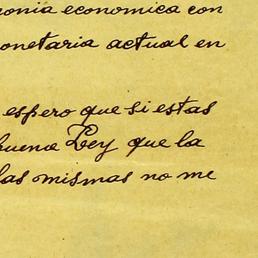 onia economica con
onetaria actual en
espero que si estas
buena Ley que la
las mismas no me